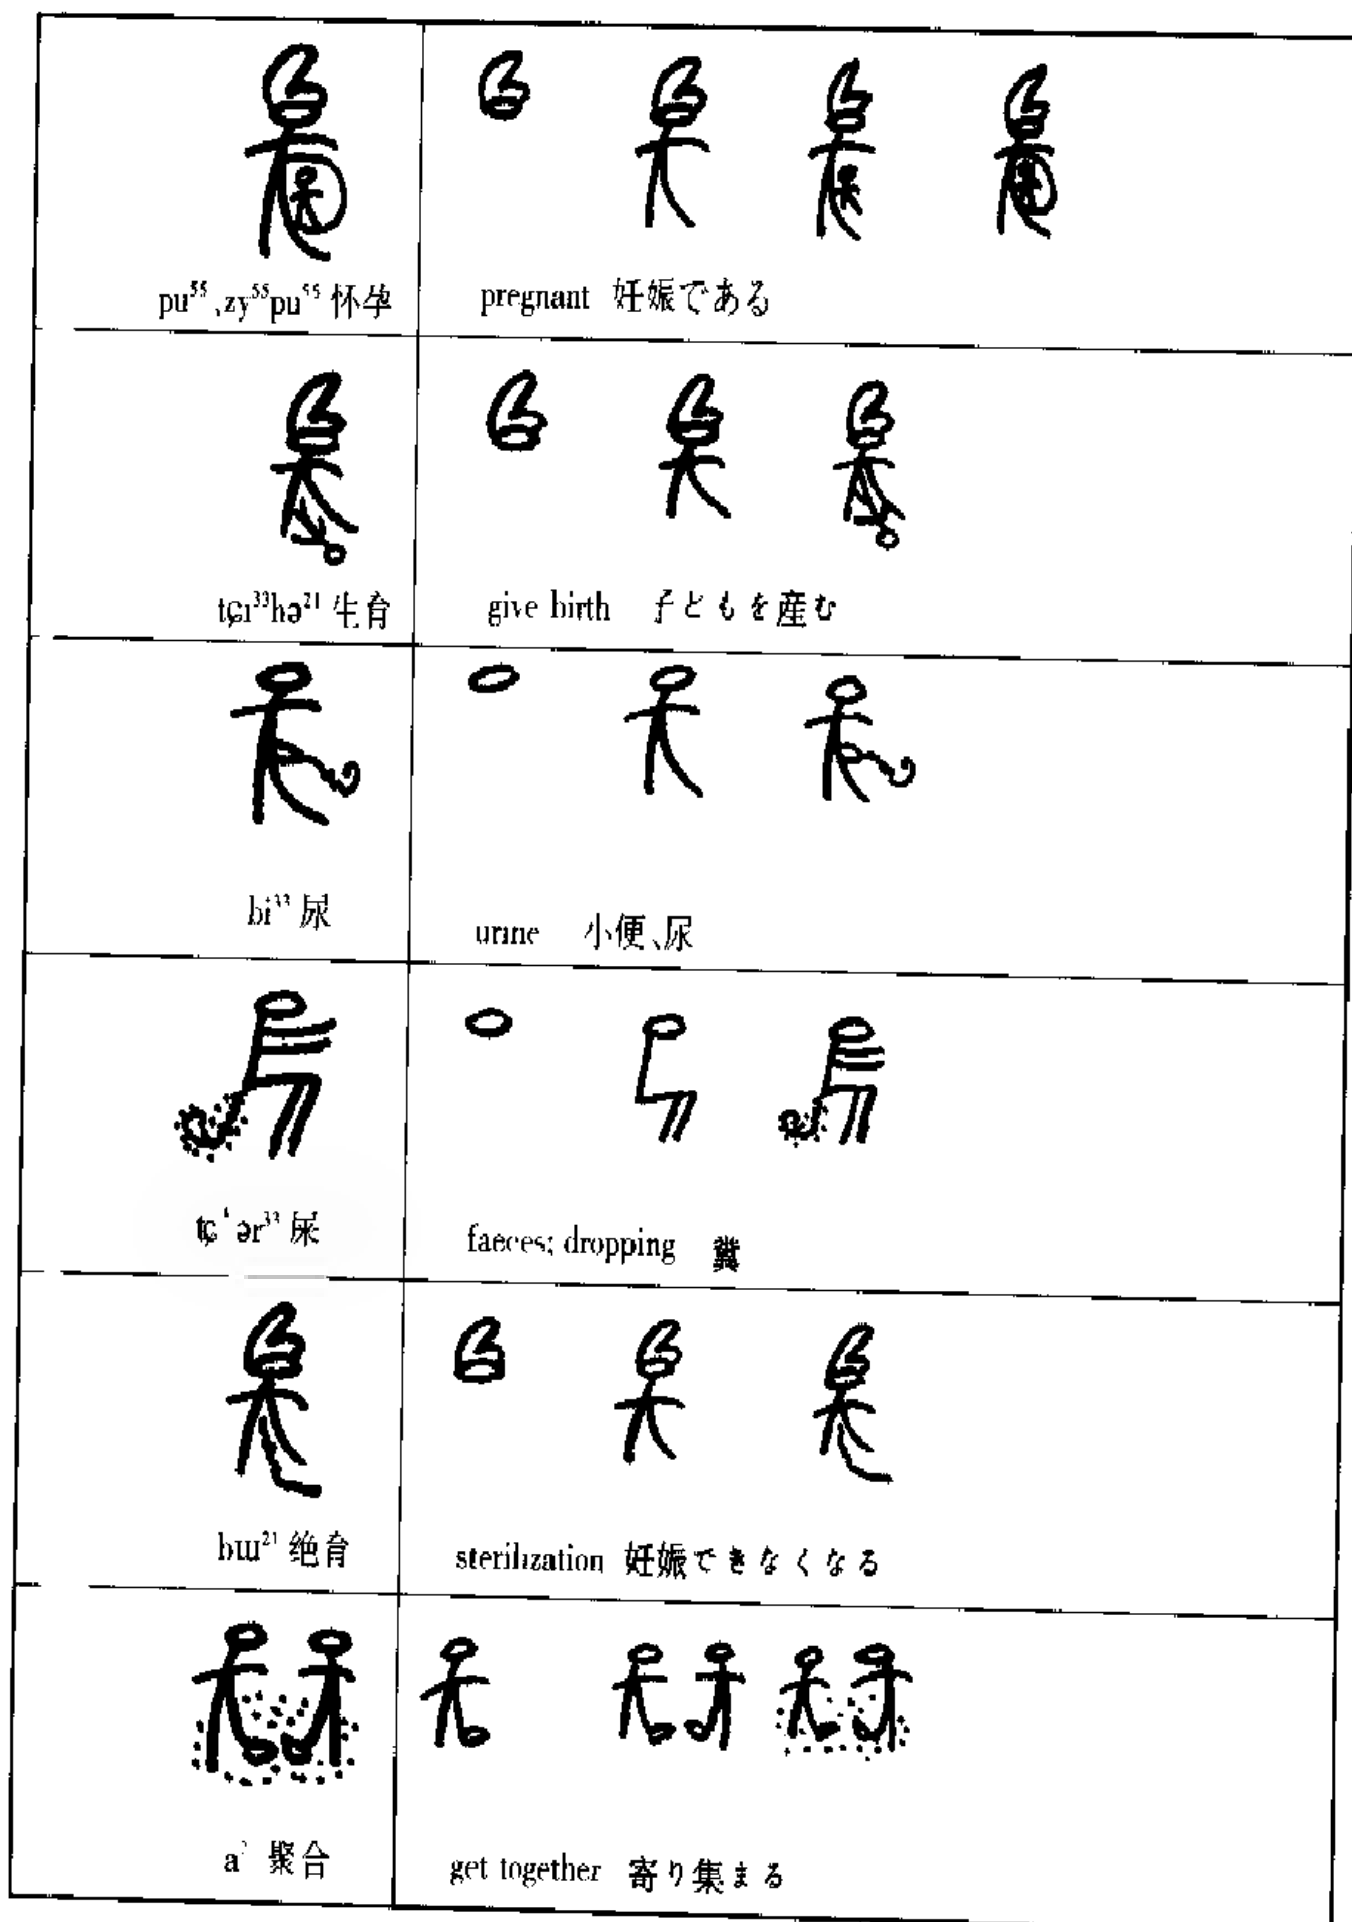 pu⁵⁵、zy⁵⁵pu⁵⁵ 怀孕
pregnant 妊娠である
tɕɪ³³hə²¹ 生育
give birth 子どもを産む
bi³³ 尿
urine 小便、尿
tɕ‘ər³³ 屎
faeces; dropping 糞
bɯ²¹ 绝育
sterilization 妊娠できなくなる
a 聚合
get together 寄り集まる